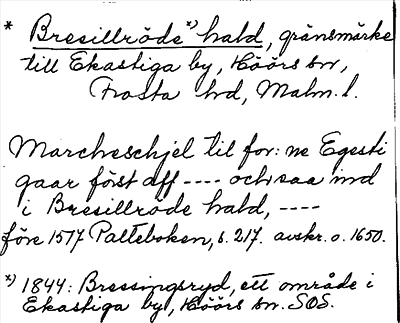 * Bresillröde*) hald, gränsmärke
till Ekastiga by, Höörs sn,
Frosta hd, Malm. l.
Marcheschjel til for: ne Egesti
gaar först aff ---- och saa ind
i Bresillröde hald, ----
före 1577 Palteboken, s. 217. avskr. o. 1650.
*) 1844: Bressingsryd, ett område i
Ekastiga by, Höörs sn. SOS.